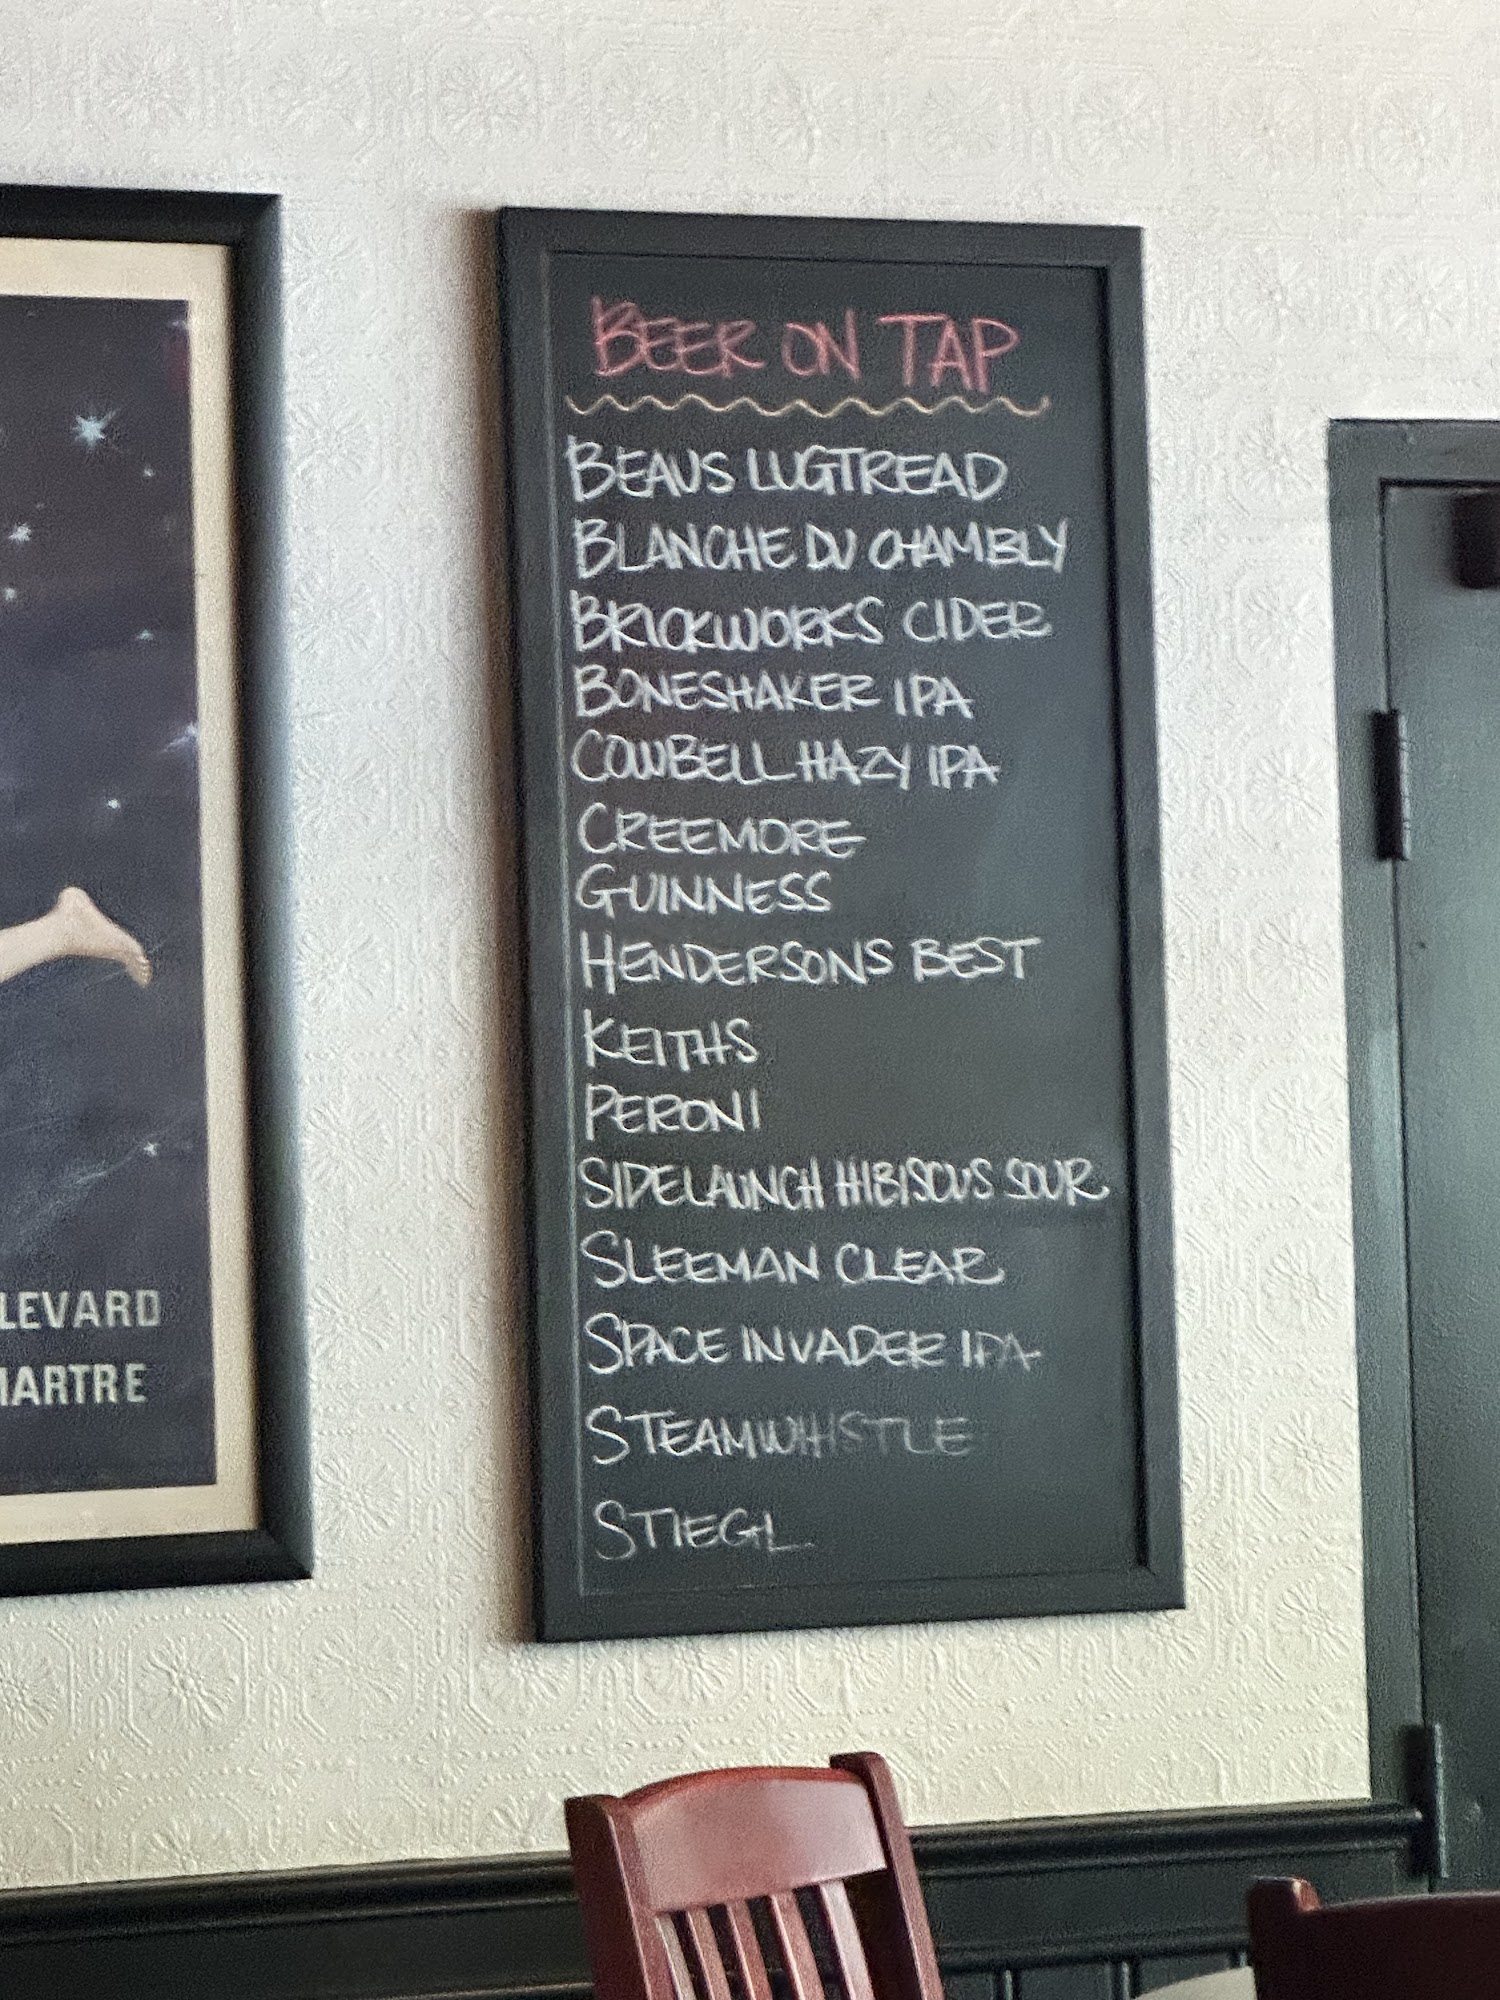 BEER ON TAP
BEAUS LUGTREAD
BLANCHE DU CHAMBLY
BRICKWORKS CIDER
BONESHAKER IPA
COWBELL HAZY IPA
CREEMORE
GUINNESS
HENDERSONS BEST
KEITHS
PERONI
SIDELAUNCH HIBISCUS SOUR
SLEEMAN CLEAR
SPACE INVADER IPA
STEAMWHISTLE
STIEGL
LEVARD
MARTRE